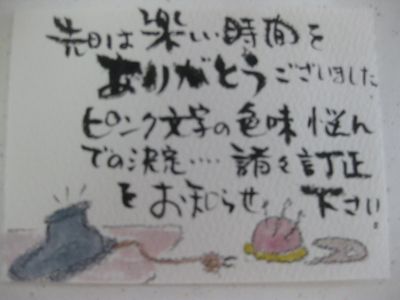 先日は楽しい時間を
ありがとうございました
ピンク文字の色味悩ん
での決定‥‥諸々訂正
をお知らせ下さい。